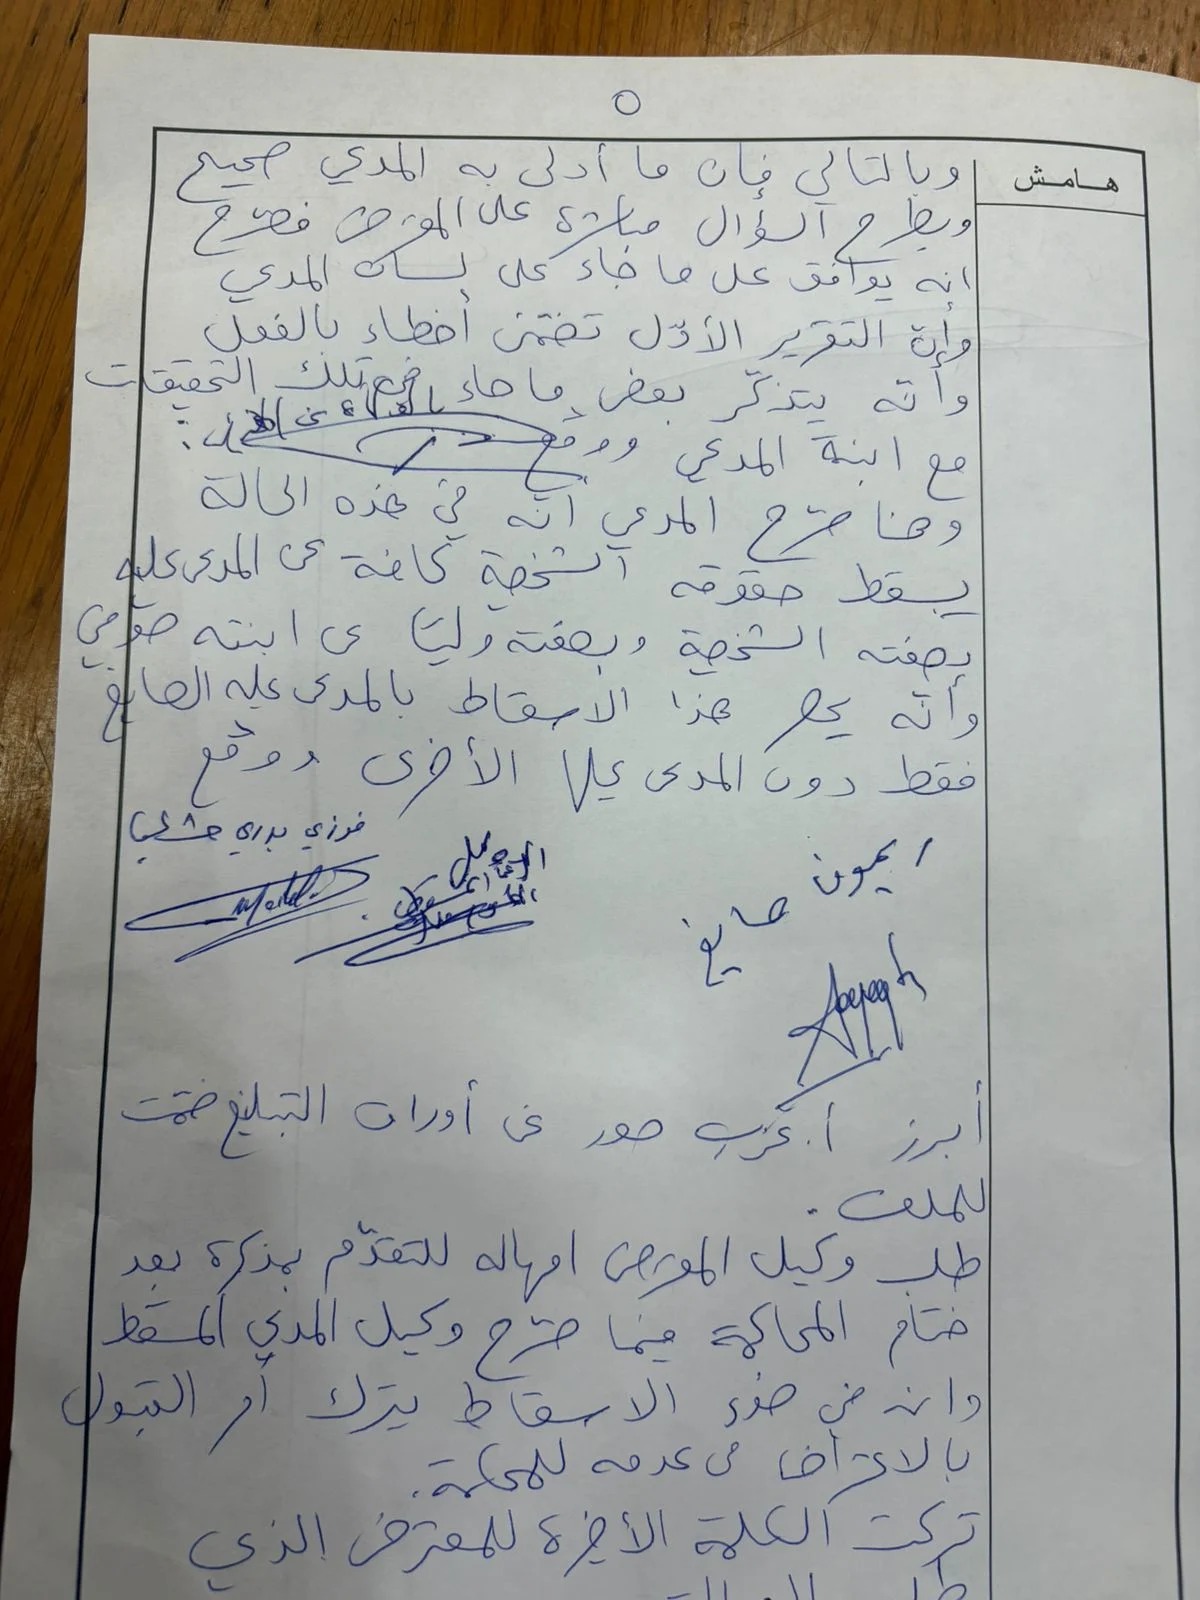 ٥
هامش
وبالتالي فإن ما أدلى به المدعي صحيح
وبطرح السؤال مباشرة على المعترض فصرّح
انه يوافق على ما جاء على لسان المدعي
وأن التقرير الأوّل تضمّن أخطاء بالفعل
وأنّه يتذكّر بعض ما جاء في تلك التحقيقات
مع ابنة المدعي ووقّع
وهنا صرّح المدعي أنّه في هذه الحالة
يسقط حقوقه الشخصية كافة عن المدعى عليه
بصفته الشخصية وبصفته وليّاً عن ابنته صوفي
وأنّه يحصر هذا الاسقاط بالمدعى عليه الصايغ
فقط دون المدعى عليها الأخرى ووقّع
فوزي بدري مشلب
ريمون صايغ
أبرز أ. عرب صور عن أوراق التبليغ ضمّت
للملف.
طلب وكيل المعترض امهاله للتقدّم بمذكرة بعد
ختام المحاكمة فيما صرّح وكيل المدعي المسقط
وانه في ضوء الاسقاط يترك أمر القبول
بالاعتراض من عدمه للمحكمة.
تركت الكلمة الأخيرة للمعترض الذي